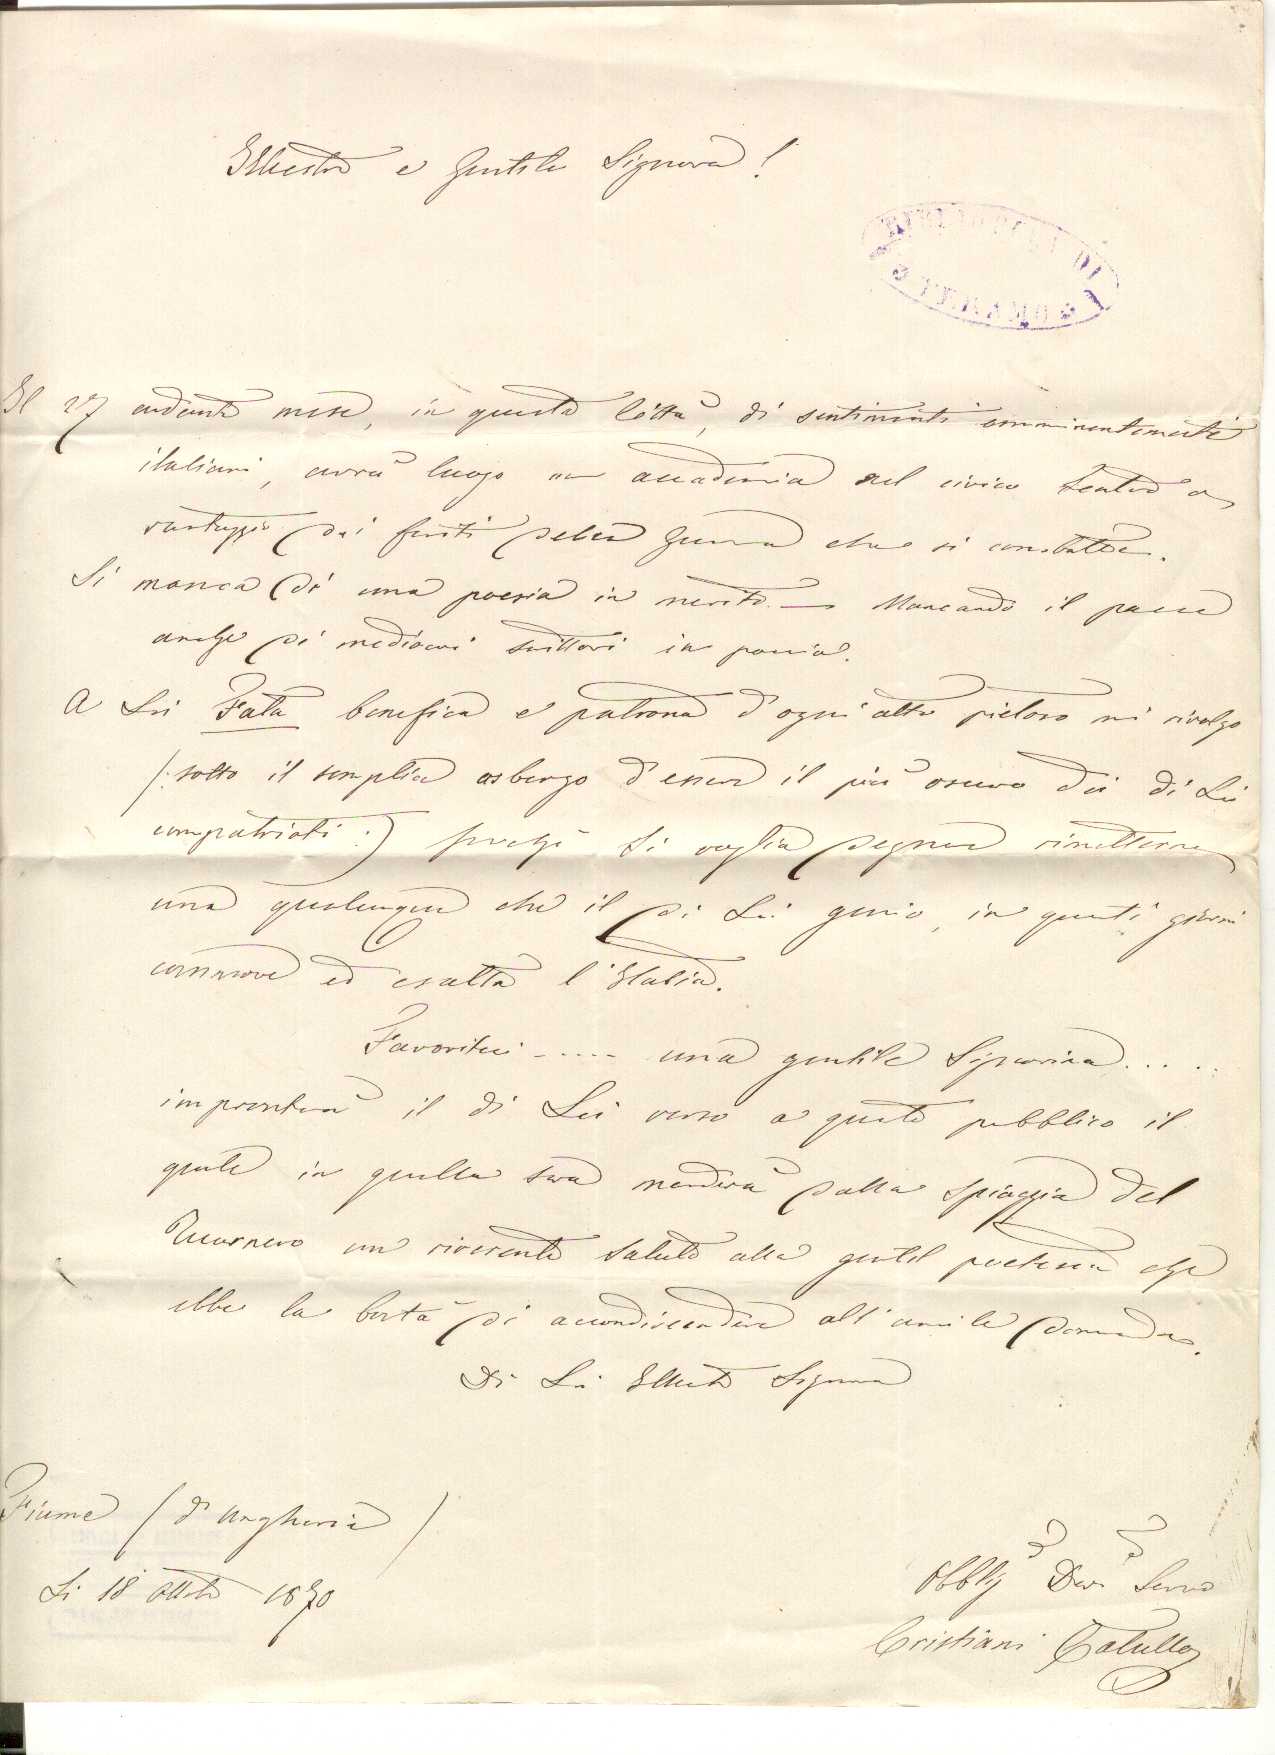 Illustre e Gentile Signora!
BIBLIOTECA DI
TERAMO
Il 27 andante mese, in questa Città, di sentimenti emminentemente
italiani, avrà luogo un accademia nel civico teatro a
vantaggio dei feriti della guerra che si combatte.
Si manca di una poesia in merito — Mancando il paese
anche di mediocri scrittori in poesia.
A Lei Fata benefica e patrona d'ogni atto pietoso mi rivolgo
(: sotto il semplice osbergo d'essere il più oscuro dei di Lei
compatrioti :) perchè Si voglia degnare rimetterne
una qualunque che il di Lei genio, in questi giorni
commove ed esalta l'Italia.
Favoriteci ----- una gentile Signorina.....
impronterà il di Lei verso a questo pubblico il
quale in quella sera manderà dalla spiaggia del
Quarnero un riverente saluto alla gentil poetessa che
ebbe la bontà di accondiscendere all'umile domanda.
Di Lei Illustre Signora
Fiume (d'Ungheria)
Li 18 Ottobre 1870
Obblg Dev Servo
Cristiani Catullo